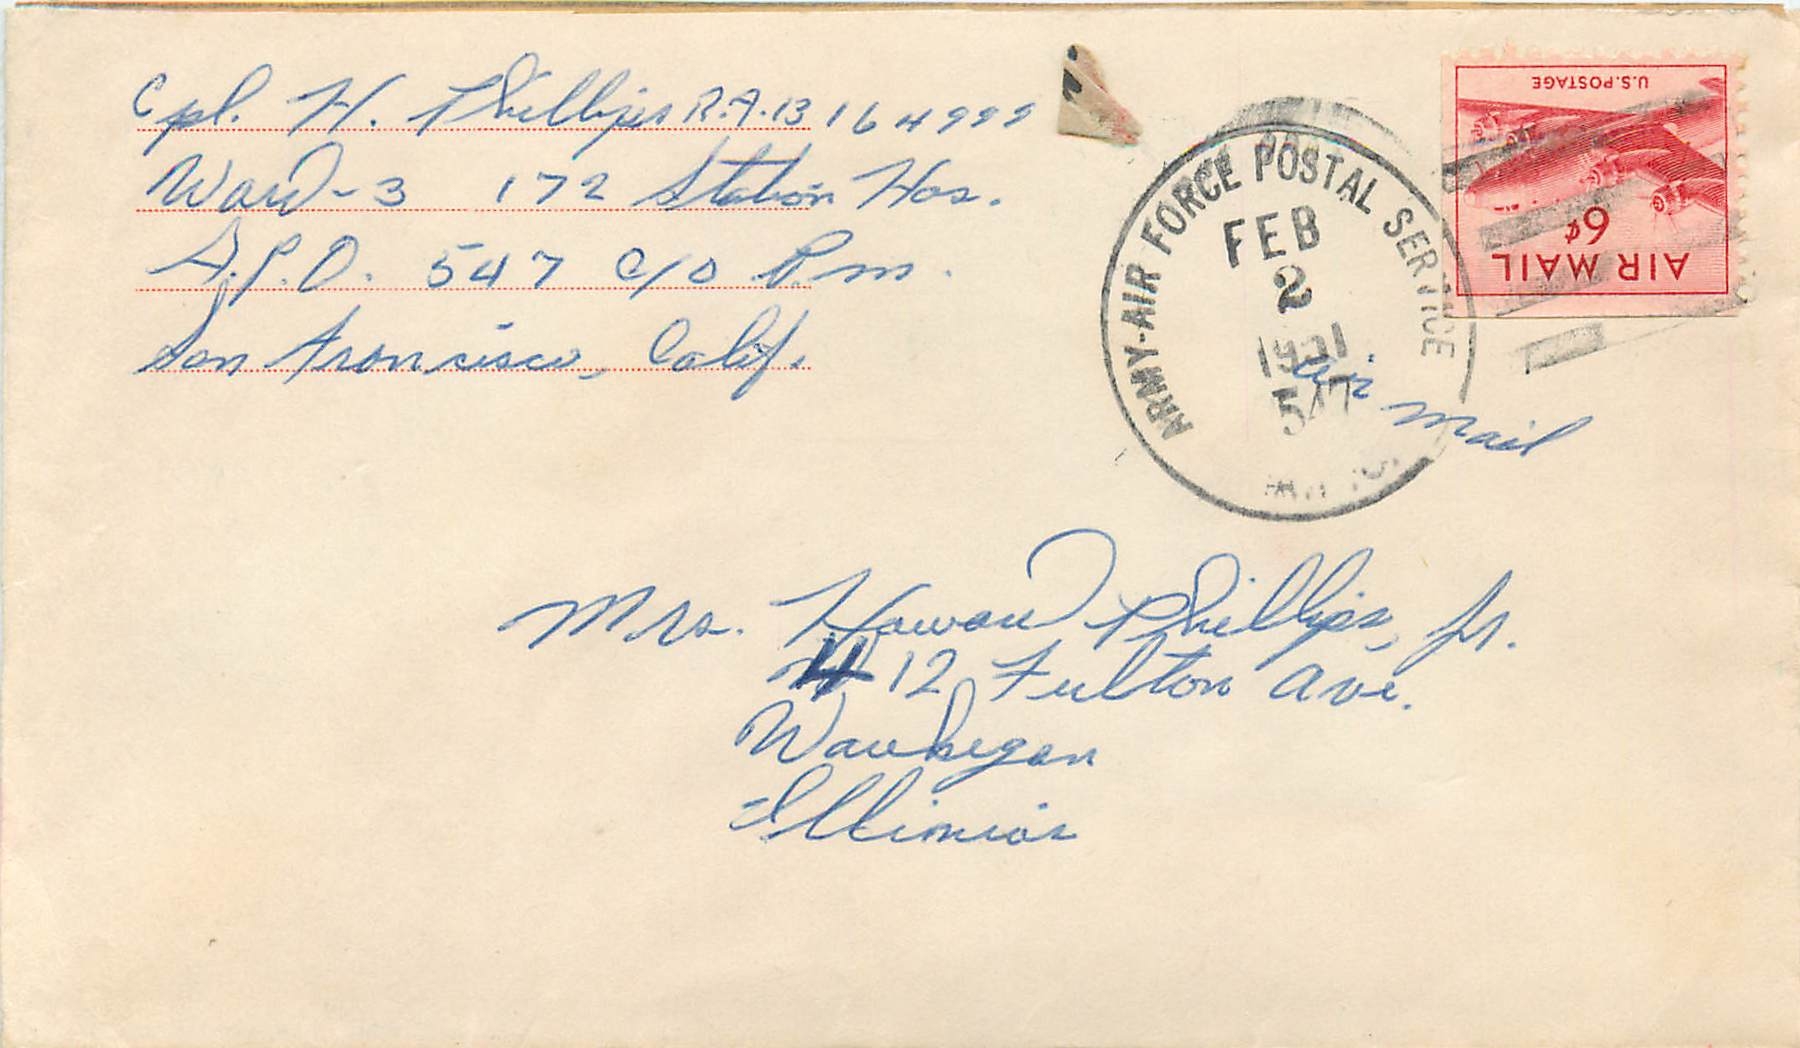 Cpl. H. Phillips R.A. 13 164999
Ward-3 172 Station Hos.
A.P.O. 547 c/o P.m.
San Francisco, Calif.
ARMY-AIR FORCE POSTAL SERVICE
FEB
2
1951
547
U.S. POSTAGE
6¢
AIR MAIL
Air Mail
Mrs. Howard Phillips, Jr.
412 Fulton Ave.
Waukegan
Illinois